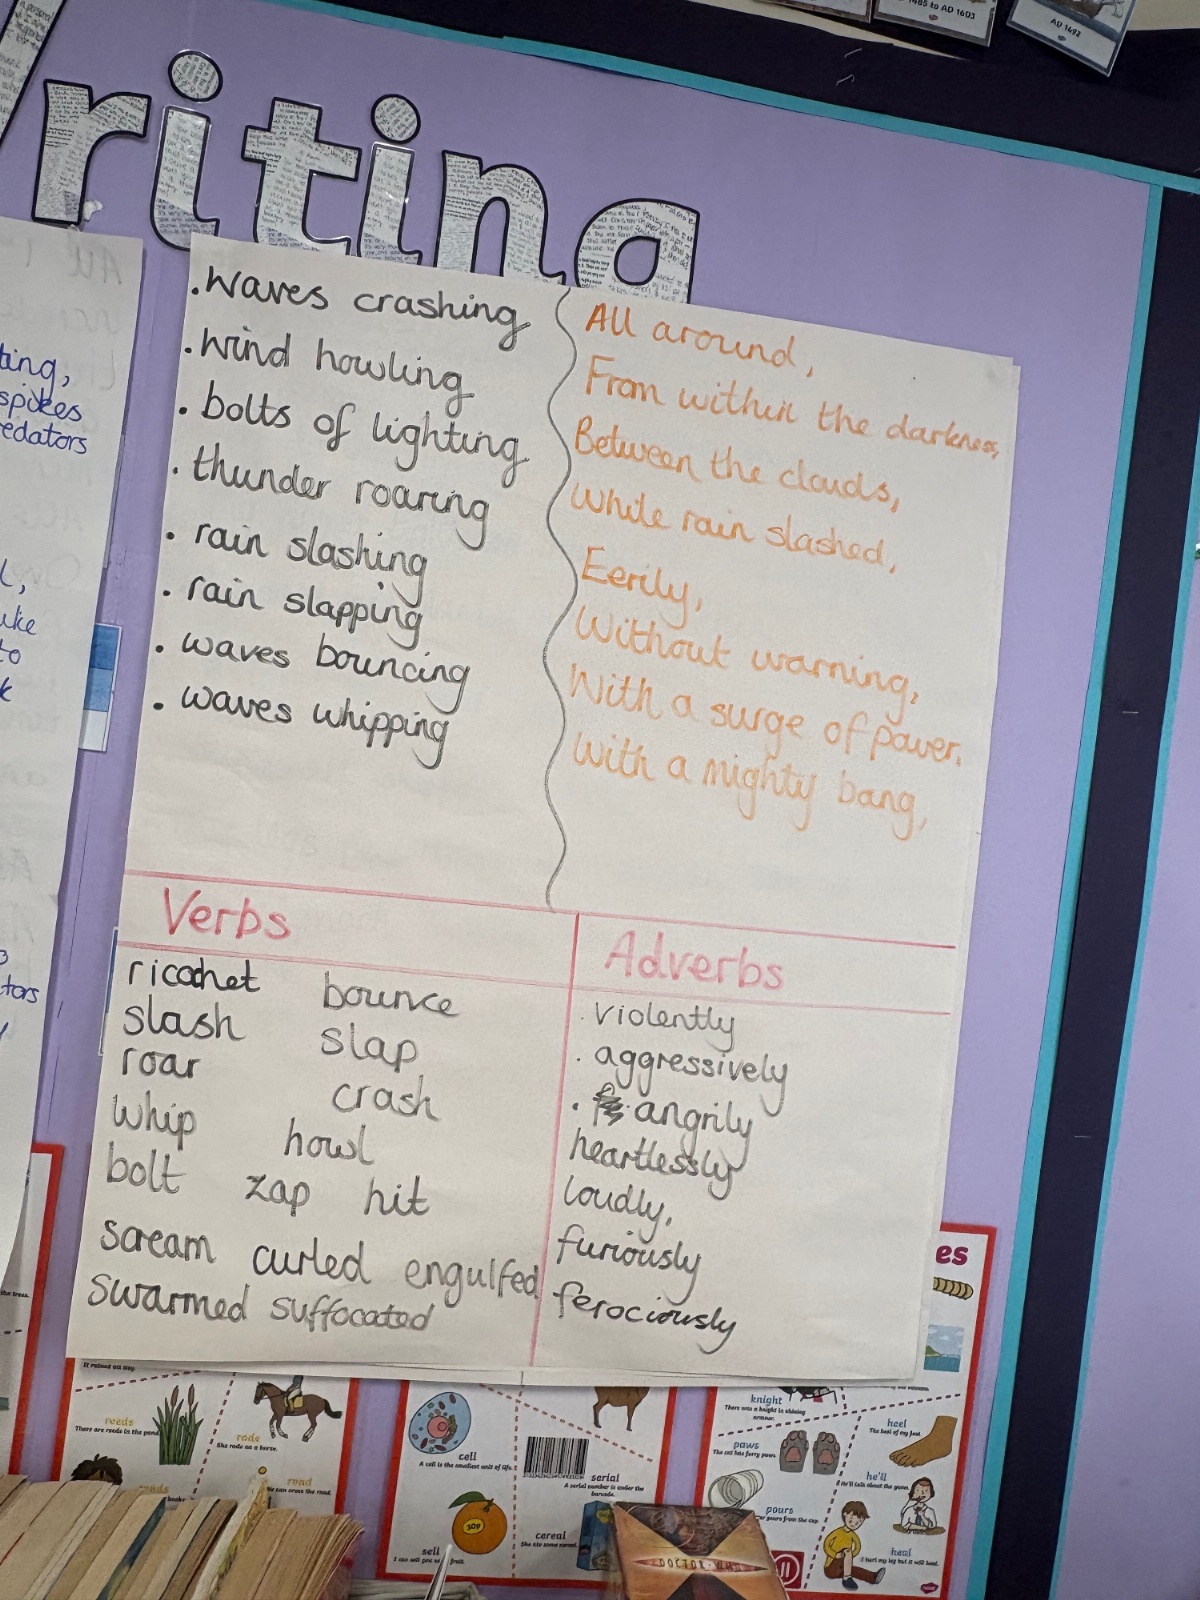 1485 to AD 1603
AD 1492
riting
ting,
spikes
edators
to
tors
. waves crashing
. wind howling
. bolts of lighting
. thunder roaring
. rain slashing
. rain slapping
. waves bouncing
. waves whipping
All around,
From within the darkness,
Between the clouds,
While rain slashed,
Eerily,
Without warning,
With a surge of power.
With a mighty bang,
Verbs
ricochet bounce
slash slap
roar
crash
whip howl
bolt zap hit
scream curled engulfed
swarmed suffocated
Adverbs
. violently
. aggressively
. angrily
heartlessly
loudly,
furiously
ferociously
es
It rained all day.
reeds
There are reeds in the pond.
rode
She rode on a horse.
road
cell
A cell is the smallest unit of life.
serial
A serial number is under the
barcode.
sell
50p
cereal
She ate some cereal.
knight
There was a knight in shining
armour.
heel
The heel of my foot.
paws
The cat has furry paws.
he'll
He'll talk about the game.
pours
heal
I hurt my leg but it will heal.
DOCTOR WHO